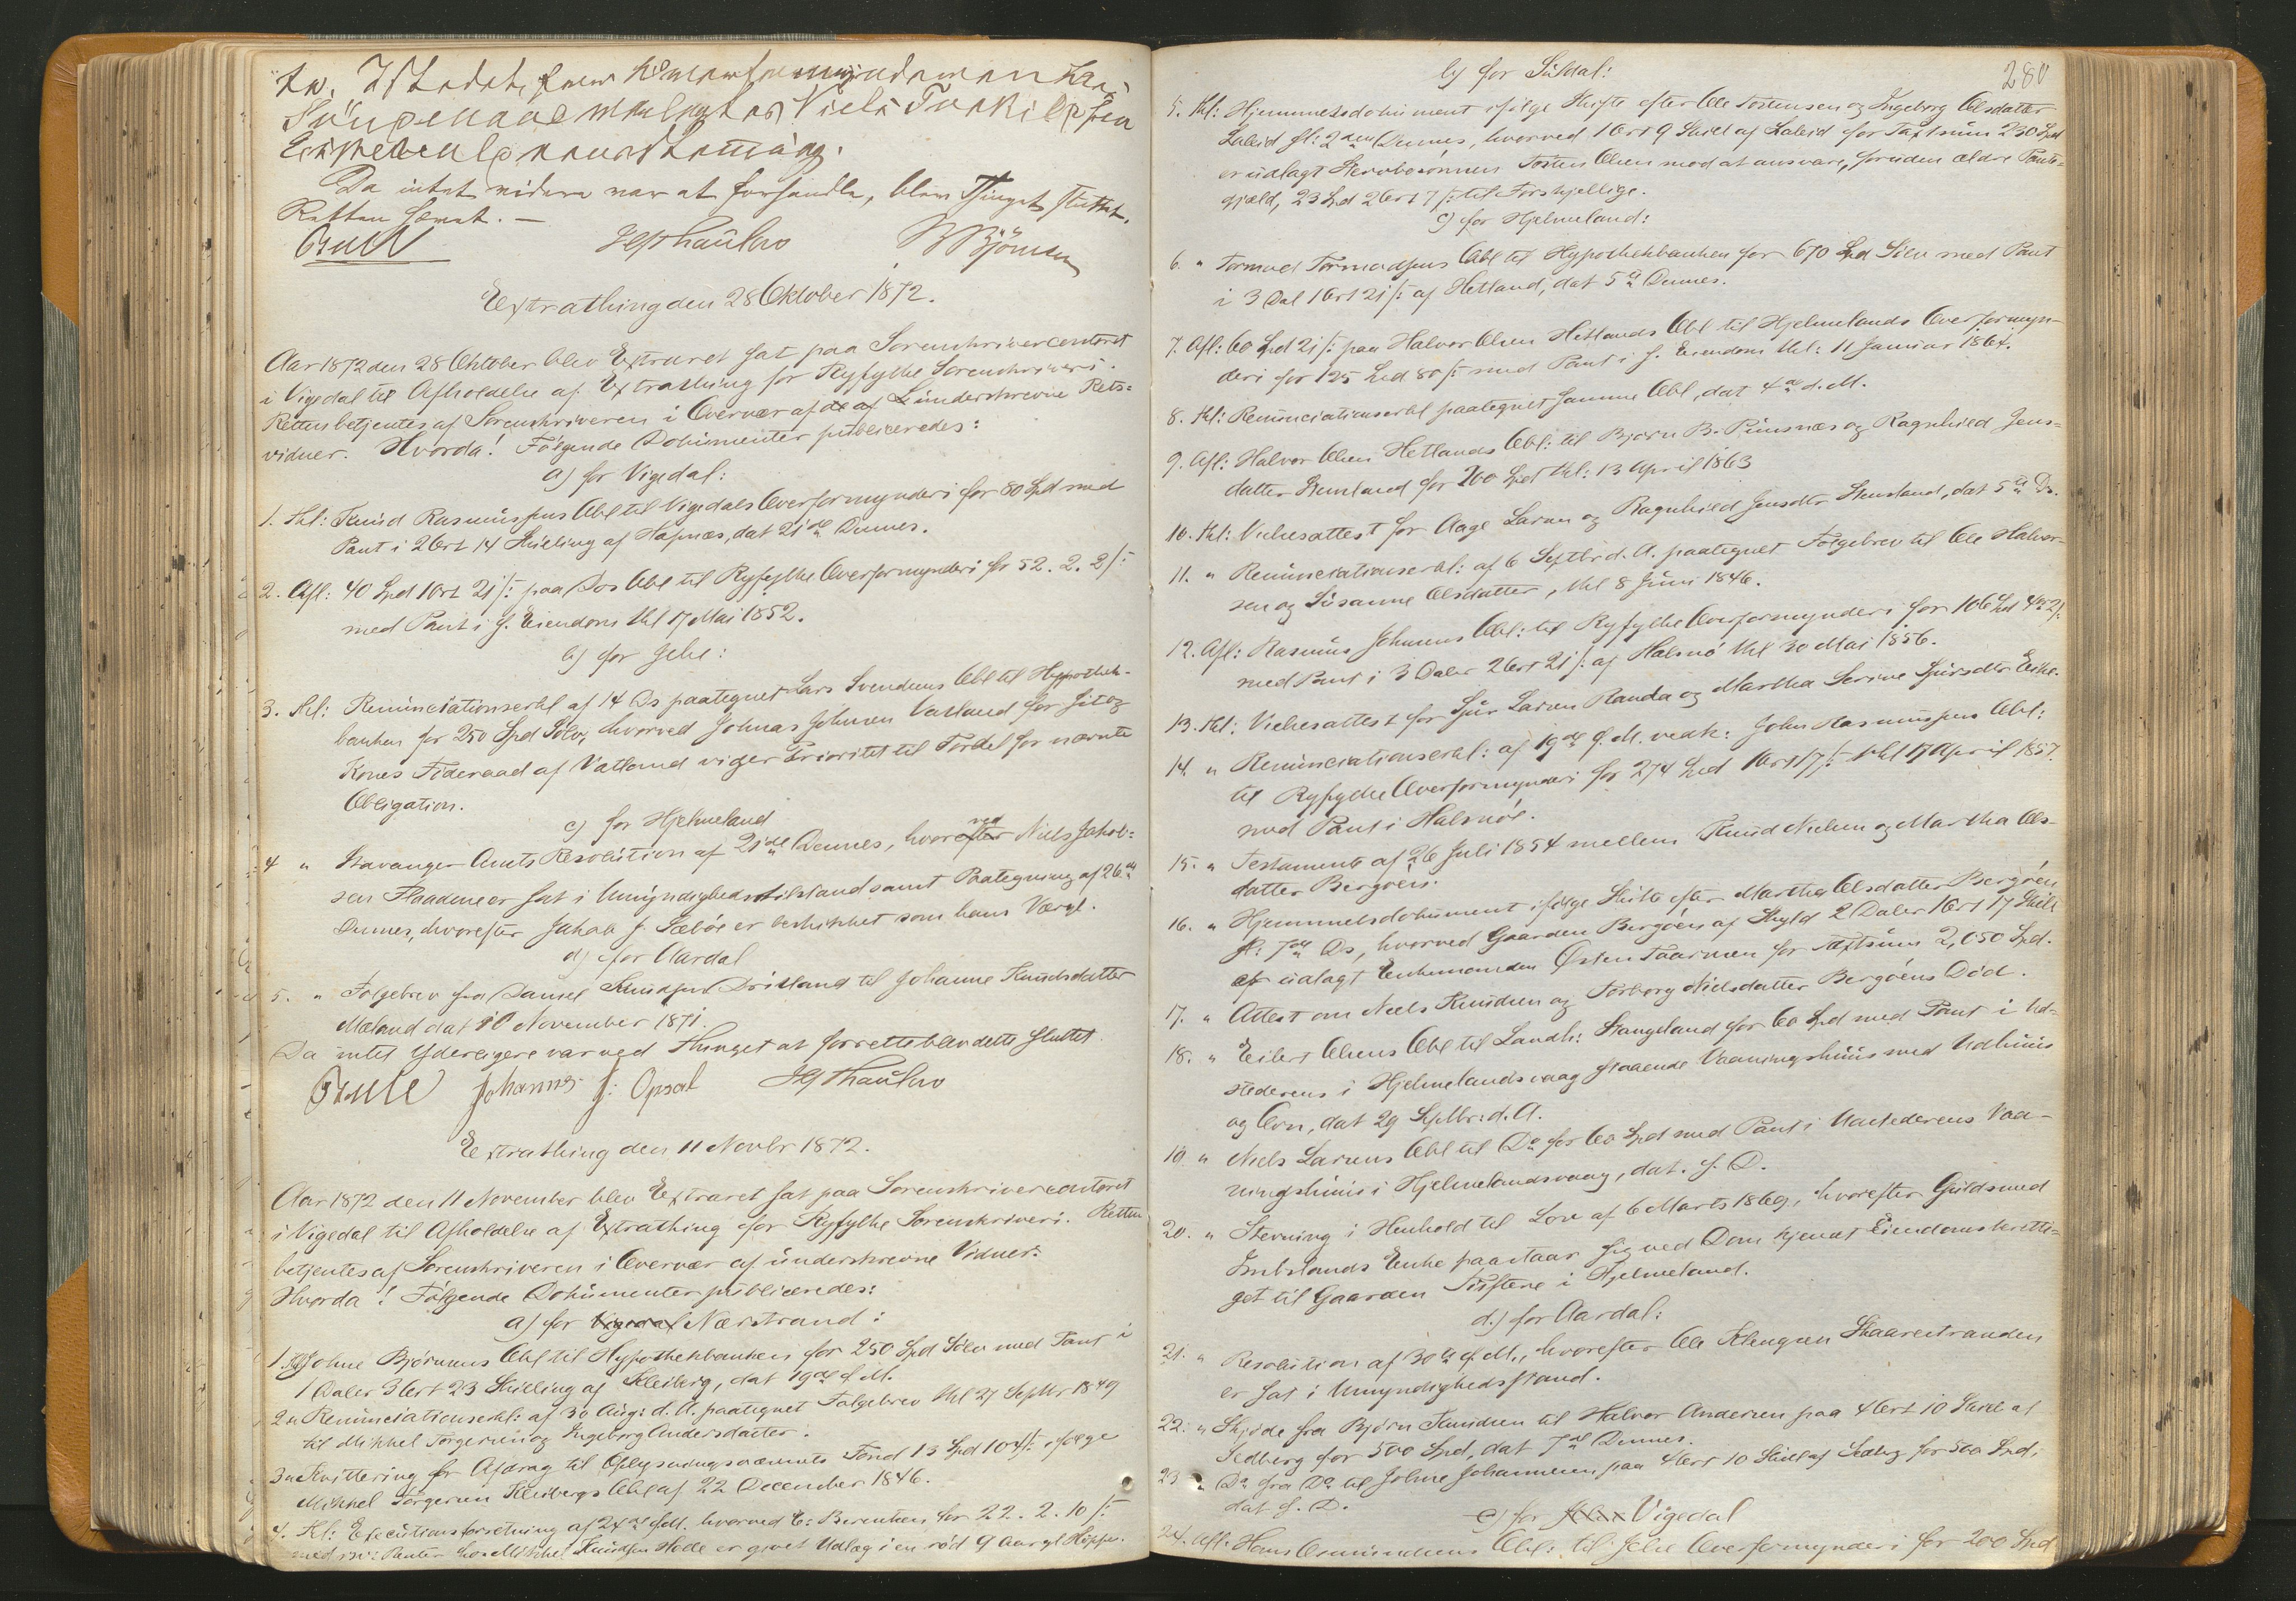 Da intet videre var at forhandle, blev Thinget sluttet.
Retten hævet. —
JHThaulow BBjörnsen
Extrathing den 28 Oktober 1872.
Aar 1872 den 28 Oktober blev Extraret sat paa Sorenskrivercontoret
i Vigedal til Afholdelse af Extrathing for Ryfylke Sorenskriveri.
Retten betjentes af Sorenskriveren i Overvær af de af underskrevne Rets-
vidner. Hvorda! Følgende Dokumenter publiceredes:
a) for Vigedal:
1. Thl: Knud Rasmussens Obl til Vigedals Overformynderi for 80 Spd med
Pant i 2 Ort 14 Skilling af Hapnæs, dat 21de Dennes.
2. Afl: 40 Spd 1 Ort 21 /: paa Do's Obl til Ryfylke Overformynderi for 52. 2. 2/:
med Pant i s. Eiendom thl 17 Mai 1852.
b) for Jelse:
3. Thl: Renunciationserkl af 14 Ds paategnet Lars Svendsens Obl til Hypothek-
banken for 250 Spd Sølv, hvorved Johnas Johnsen Vatland for sit og
Kones Føderaad af Vatland viger Prioritet til Fordel for nævnte
Obligation.
c) for Hjelmeland
4 " Stavanger Amts Resolution af 21de Dennes, hvorefter ved Niels Jakob-
sen er sat i Umyndighedstilstand samt Paategning af 26de
Dennes, hvorefter Jakob J. Sæbøe er beskikket som hans Værge.
d) for Aardal
5. " Følgebrev fra Daniel Knudsen til Johanne Knudsdatter
Mæland dat 10 November 1871.
Da intet Yderligere var ved Thinget at forrette blev dette sluttet.
Johannes J: Opsal JHThaulow
Extrathing den 11 Novbr 1872.
Aar 1872 den 11 November blev Extraret sat paa Sorenskrivercontoret
i Vigedal til Afholdelse af Extrathing for Ryfylke Sorenskriveri. Retten
betjentes af Sorenskriveren i Overvær af underskrevne Vidner.
Hvorda! Følgende Dokumenter publiceredes:
a) for Vigedal Nærstrand:
1. Thl Johne Bjørnsens Obl til Hypothekbanken for 250 Spd Sølv med Pant i
1 Daler 3 Ort 23 Skilling af Kleiberg, dat 19de f. M.
2 " Renunciationserkl: af 30 Aug: d. A. paategnet Følgebrev thl 27 Septbr 1849
til Mikkel Torgersen og Ingeborg Andersdatter.
3 " Kvittering for Afdrag til Oplysningsvæsenets Fond 13 Spd 104/: ifølge
Mikkel Torgersen Kleibergs Obl af 22 December 1846.
4. Thl: Executionsforretning af 24de f. M. hvorved E: Berentsen for 22. 2. 10 /:
med Renter hos Mikkel Knudsen er givet Udlæg i en rød 9 Aar gl Hoppe.
280
b) for Suldal:
5. Thl: Hjemmelsdokument ifølge Skifte efter Ole Tostensen og Ingeborg Olsdatter
sl: 2den Dennes, hvorved 1 Ort 9 Skill af for Taxtsum 230 Spd
er udlagt Tosten Olsen mod at ansvare, foruden ældre Pante-
gjæld, 23 Spd 2 Ort 7 /: til Forskjellige.
c) for Hjelmeland:
6. " Tormod Tormodsens Obl til Hypothekbanken for 670 Spd Sølv med Pant
i 3 Dal 1 Ort 21 /: af Hetland, dat 5te Dennes.
7. Afl: 60 Spd 21 /: paa Halvor Olsen Hetlands Obl til Hjelmelands Overformyn-
deri for 125 Spd 80 /: med Pant i s. Eiendom thl: 11 Januar 1864.
8. Thl: Renunciationserkl paategnet samme Obl, dat 4de d. M.
9. Afl: Halvor Olsen Hetlands Obl: til Bjørn B. og Ragnhild Jens-
datter for 200 Spd thl: 13 April 1863
10. Thl: Vielsesattest for Aage Larsen og Ragnhild Jensdtr Stensland, dat 5te Ds.
11. " Renunciationserkl: af 6 Septbr d. A. paategnet Følgebrev til Ole Halvor-
sen og Susanne Olsdatter, thl 8 Juni 1846.
12. Afl: Rasmus Johnsens Obl: til Ryfylke Overformynderi for 106 Spd 4 Ort 2/:
med Pant i 3 Daler 2 Ort 21 /: af Halsnø thl 30 Mai 1856.
13. Thl: Vielsesattest for Sjur Larsen Randa og Martha Serine Sjursdtr Eike.
14. " Renunciationserkl: af 19de f. M. vedk: John Rasmussens Obl:
til Ryfylke Overformynderi for 274 Spd 1 Ort 17 /: thl 17 April 1857.
med Pant i Halsnøe.
15. " Testament af 26 Juli 1854 mellem Knud Nielsen og Martha Ols-
datter Bergøen.
16. " Hjemmelsdokument ifølge Skifte efter Martha Olsdatter Bergøen
sl: 7de Ds, hvorved Gaarden Bergøen af Skyld 2 Daler 1 Ort 17 Skill
er udlagt Enkemanden Østen for Taxtsum 2,050 Spd.
17. " Attest om Niels Knudsen og Torborg Nielsdatter Bergøens Død.
18. " Eilert Olsens Obl til Landh: Stangeland for 60 Spd med Pant i Ud-
stederens i Hjelmelandsvaag staaende Vaaningshuus med Udhuus
og Ovn, dat 29 Septbr: d. A.
19. " Niels Larsens Obl til Do for 60 Spd med Pant i Udstederens Vaa-
ningshuus i Hjelmelandsvaag, dat. s. D.
20. " Stevning i Henhold til Lov af 6 Marts 1869, hvorefter Guldsmed
Enke paastaar sig ved Dom kjendt Eiendomsretti-
get til Gaarden i Hjelmeland.
d.) for Aardal:
21. " Resolution af 30te f. M., hvorefter Ole
er sat i Umyndighedsstand.
22. " Skjøde fra Bjørn Knudsen til Halvor Andersen paa 4 Ort 10 Skill af
Sedberg for 500 Spd, dat 7de Dennes.
23 " Do fra Do til Johne Johannesen paa 4 Ort 10 Skill af Sedberg for 500 Spd,
dat s. D.
e) for Vigedal
24. Afl: Hans Obl: til Jelse Overformynderi for 200 Spd